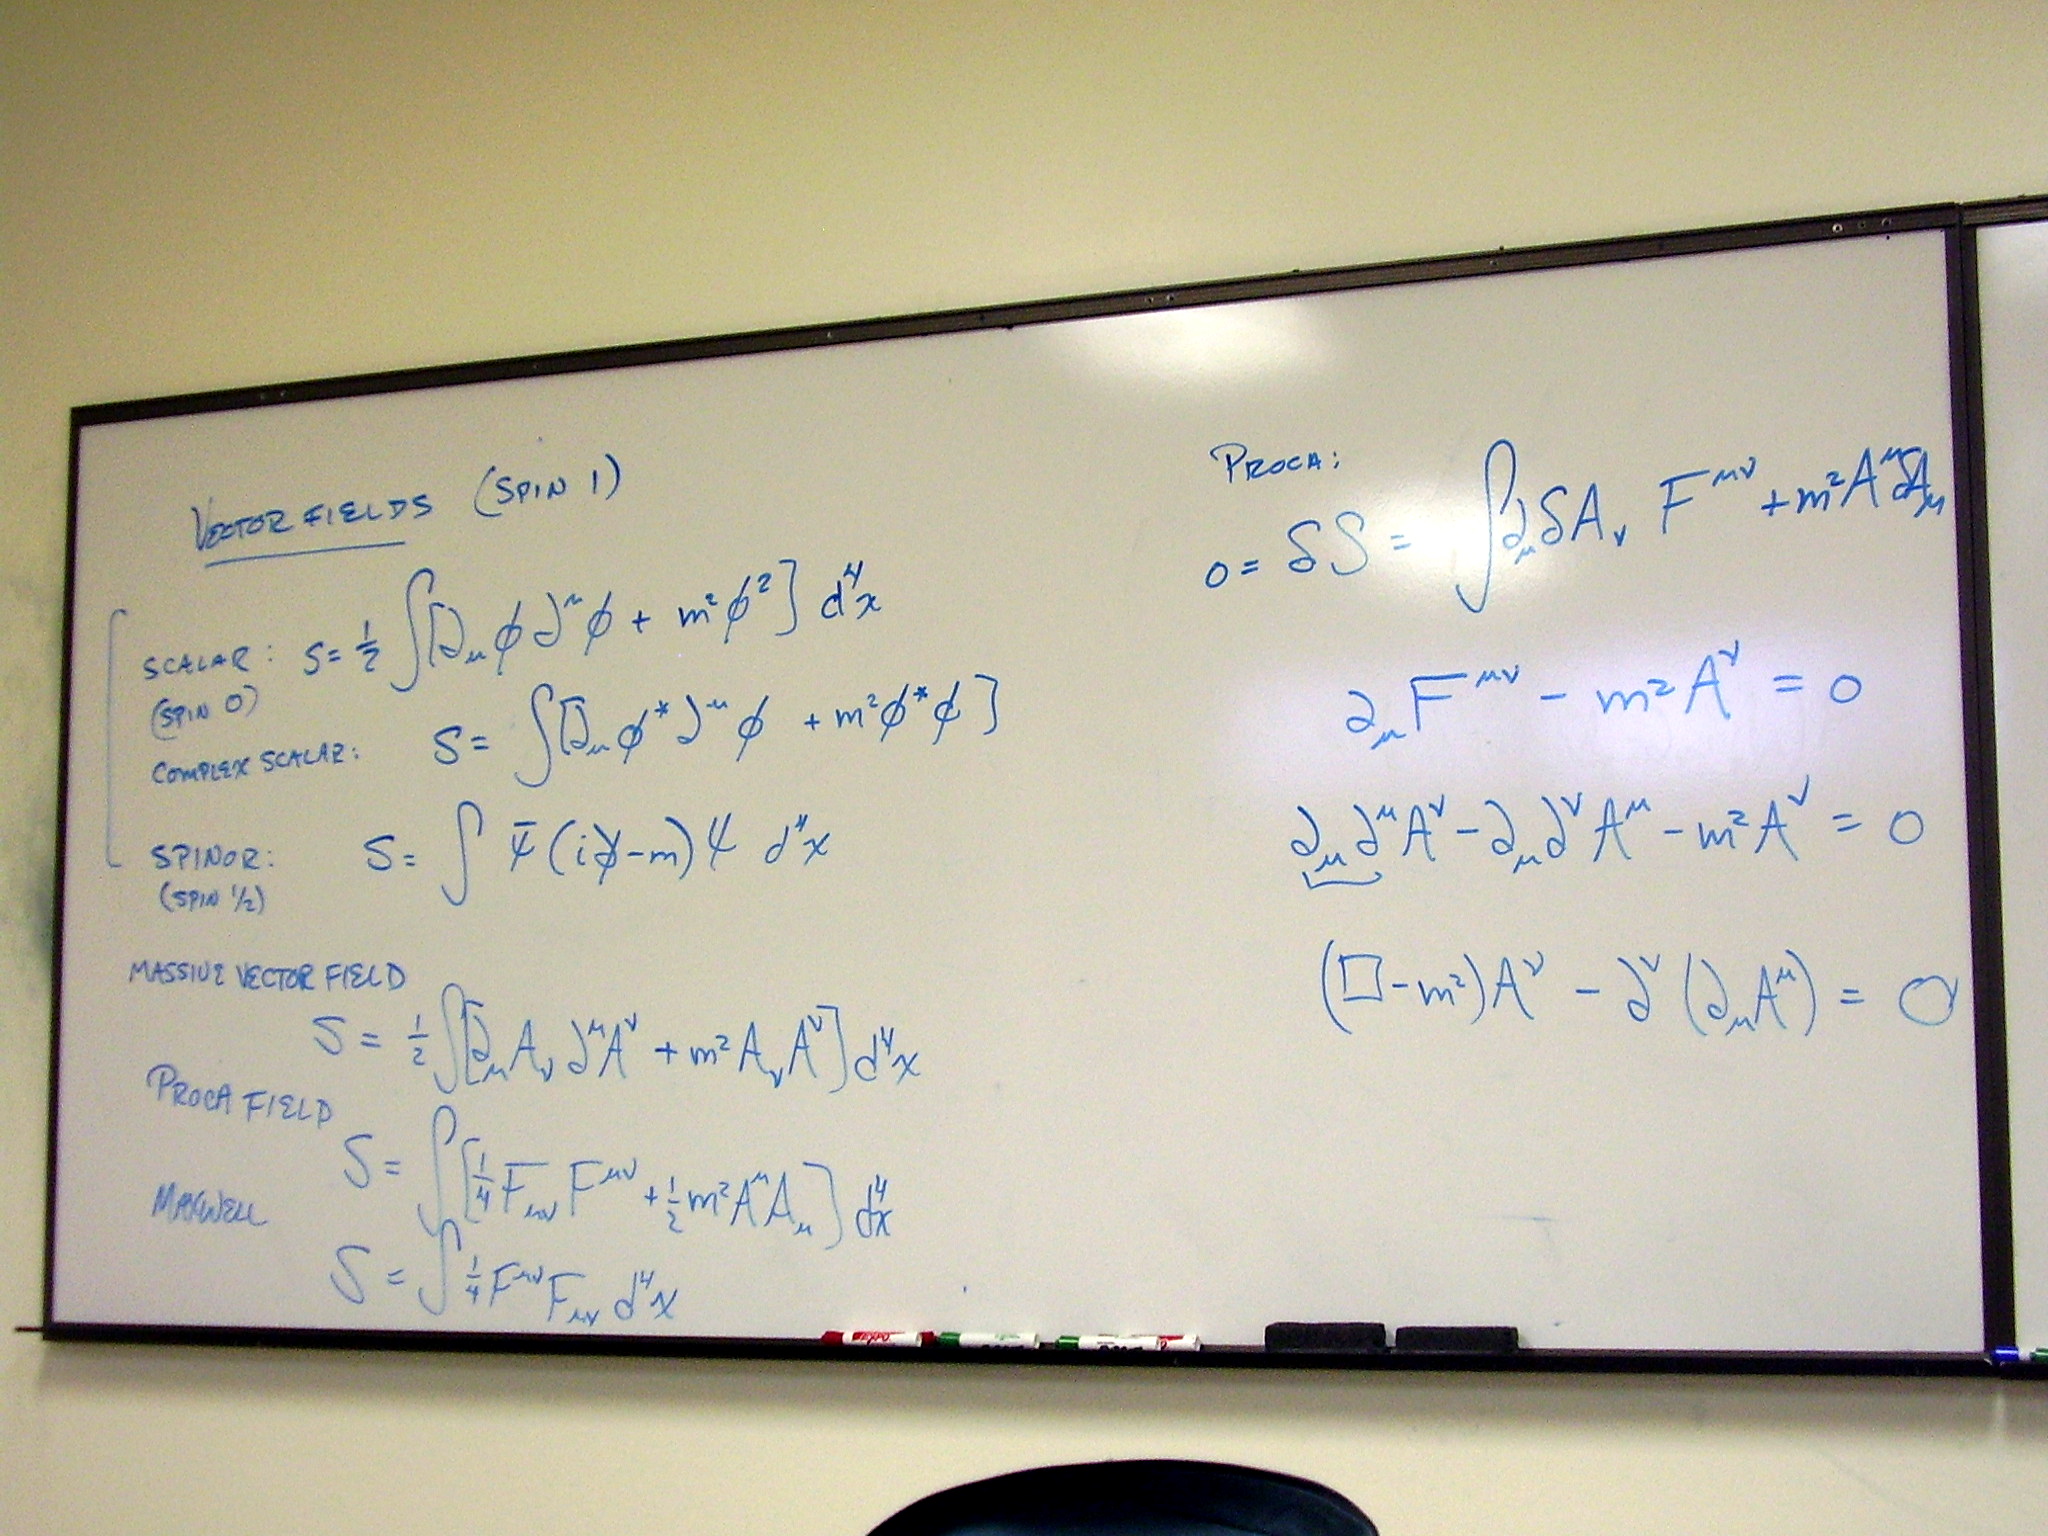 VECTOR FIELDS (SPIN 1)
SCALAR: S = 1/2 ∫[∂_μ φ ∂^μ φ + m² φ²] d⁴x
(SPIN 0)
COMPLEX SCALAR: S = ∫[∂_μ φ* ∂^μ φ + m² φ* φ]
SPINOR: S = ∫ ψ̄ (i∂̸ - m) ψ d⁴x
(SPIN 1/2)
MASSIVE VECTOR FIELD
S = 1/2 ∫[∂_μ A_ν ∂^μ A^ν + m² A_ν A^ν] d⁴x
PROCA FIELD
S = ∫[1/4 F_μν F^μν + 1/2 m² A^μ A_μ] d⁴x
MAXWELL
S = ∫ 1/4 F^μν F_μν d⁴x
PROCA:
0 = δS = ∫ ∂_μ δA_ν F^μν + m² A^μ δA_μ
∂_μ F^μν - m² A^ν = 0
∂_μ ∂^μ A^ν - ∂_μ ∂^ν A^μ - m² A^ν = 0
(□ - m²) A^ν - ∂^ν (∂_μ A^μ) = 0
EXPO